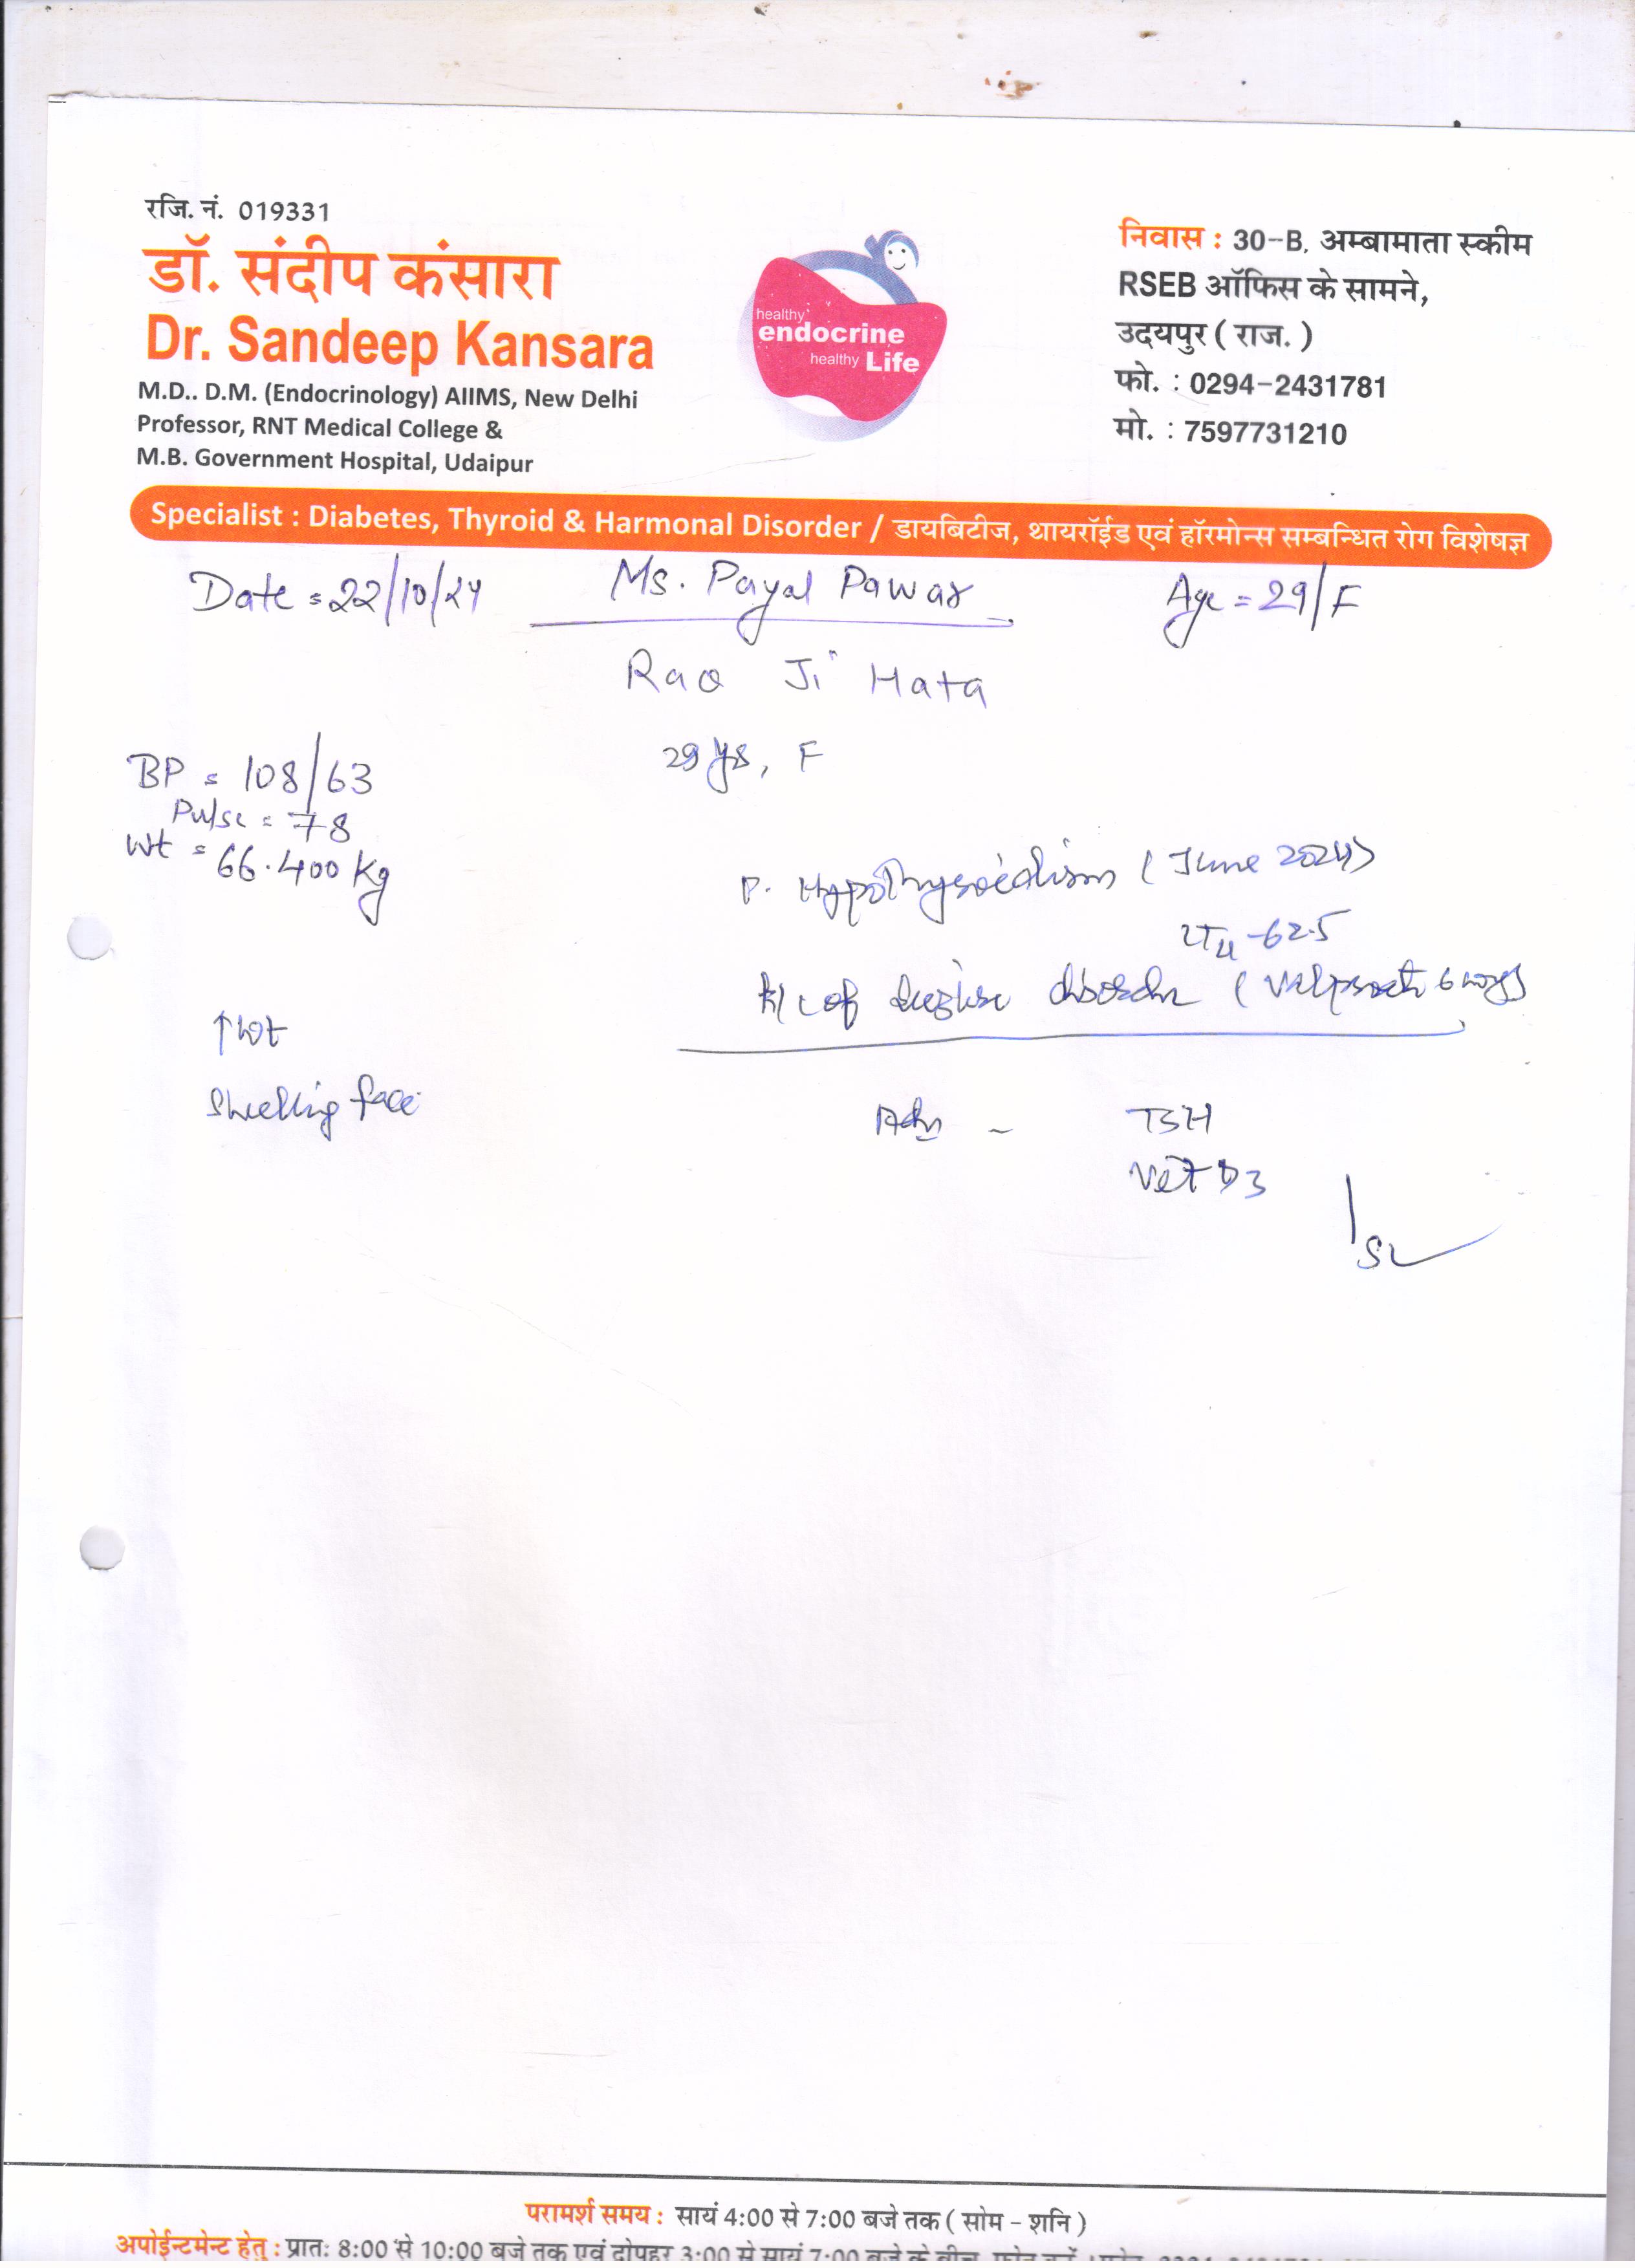 रजि. नं. 019331
डॉ. संदीप कंसारा
Dr. Sandeep Kansara
M.D.. D.M. (Endocrinology) AIIMS, New Delhi
Professor, RNT Medical College &
M.B. Government Hospital, Udaipur
healthy
endocrine
healthy Life
निवास : 30-B, अम्बामाता स्कीम
RSEB ऑफिस के सामने,
उदयपुर ( राज. )
फो. : 0294-2431781
मो. : 7597731210
Specialist : Diabetes, Thyroid & Harmonal Disorder / डायबिटीज, थायरॉईड एवं हॉरमोन्स सम्बन्धित रोग विशेषज्ञ
Date = 22/10/24 Ms. Payal Pawar Age = 29/F
Rao Ji Hata
29 yrs, F
BP = 108/63
Pulse = 78
Wt = 66.400 Kg
P. Hypothyroidism (June 2024)
LT4 -62.5
k/c of seizure disorder (Valproate
↑Wt
Swelling face
Adv - TSH
Vit D3
परामर्श समय : सायं 4:00 से 7:00 बजे तक ( सोम - शनि )
अपोईन्टमेन्ट हेतु : प्रातः 8:00 से 10:00 बजे तक एवं दोपहर 3:00 से सायं 7:00 बजे के बीच